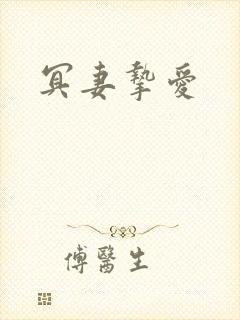 冥妻摯愛
傅醫生